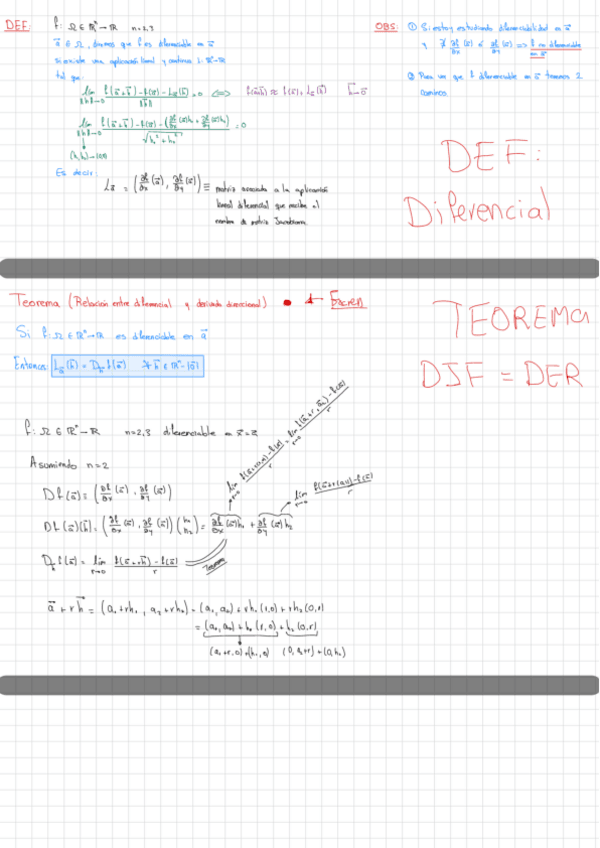 DEF: f: Ω ∈ ℝⁿ → ℝ n=2,3
a⃗ ∈ Ω, diremos que f es diferenciable en a⃗
si existe una aplicación lineal y continua L: ℝⁿ→ℝ
tal que:
lim ‖h‖→0 (f(a⃗+h⃗) - f(a⃗) - La(h⃗)) / ‖h‖ = 0 ⟺ f(a⃗+h⃗) ≈ f(a⃗) + La(h⃗) h⃗→0⃗
lim ‖h‖→0 (f(a⃗+h⃗) - f(a⃗) - (∂f/∂x (a⃗)h₁ + ∂f/∂y (a⃗)h₂)) / √(h₁² + h₂²) = 0
(h₁,h₂)→(0,0)
Es decir:
La = (∂f/∂x (a⃗), ∂f/∂y (a⃗)) ≡ matriz asociada a la aplicación
lineal diferencial que recibe el
nombre de matriz Jacobiana
OBS: ① Si estoy estudiando diferenciabilidad en a⃗
y ∄ ∂f/∂x (a⃗) ó ∂f/∂y (a⃗) => f no diferenciable
en a⃗
② Para ver que f diferenciable en a⃗ tenemos 2
caminos
DEF:
Diferencial
Teorema (Relación entre diferencial y derivada direccional)
Si f: Ω ∈ ℝⁿ→ℝ es diferenciable en a⃗
Entonces: La(h⃗) = Dh f(a⃗) ∀ h⃗ ∈ ℝⁿ-{0⃗}
TEOREMA
DIF = DER
f: Ω ∈ ℝⁿ → ℝ n=2,3 diferenciable en x⃗=a⃗
Asumiendo n=2
Df(a⃗) = (∂f/∂x (a⃗), ∂f/∂y (a⃗))
Df(a⃗)(h⃗) = (∂f/∂x (a⃗), ∂f/∂y (a⃗)) (h₁ h₂) = ∂f/∂x (a⃗)h₁ + ∂f/∂y (a⃗)h₂
Dh f(a⃗) = lim r→0 (f(a⃗+rh⃗) - f(a⃗)) / r
Teorema
a⃗ + rh⃗ = (a₁+rh₁, a₂+rh₂) = (a₁,a₂) + rh₁(1,0) + rh₂(0,1)